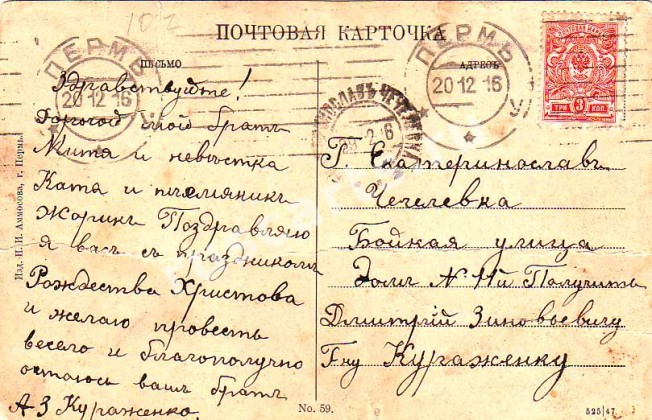 ПОЧТОВАЯ КАРТОЧКА
ПИСЬМО
АДРЕСЪ
ПЕРМЬ
20 12 16
ПЕРМЬ
20 12 16
ПОЧТОВАЯ МАРКА
ТРИ 3 КОП.
Здравствуйте!
Дорогой мой братъ
Митя и невѣстка
Катя и племяникъ
Жорикъ Поздравляю
я васъ съ праздникомъ
Рождества Христова
и желаю провесть
весело и благополучно
остаюсь вашъ братъ
А З Кураженко.
Г. Екатеринославъ
Чечелевка
Бойкая улица
Домъ N 11й Получить
Дмитрій Зиновьевичу
Гну Кураженку
Изд. Н. И. Аммосова, г. Пермь.
No. 59.
525|47